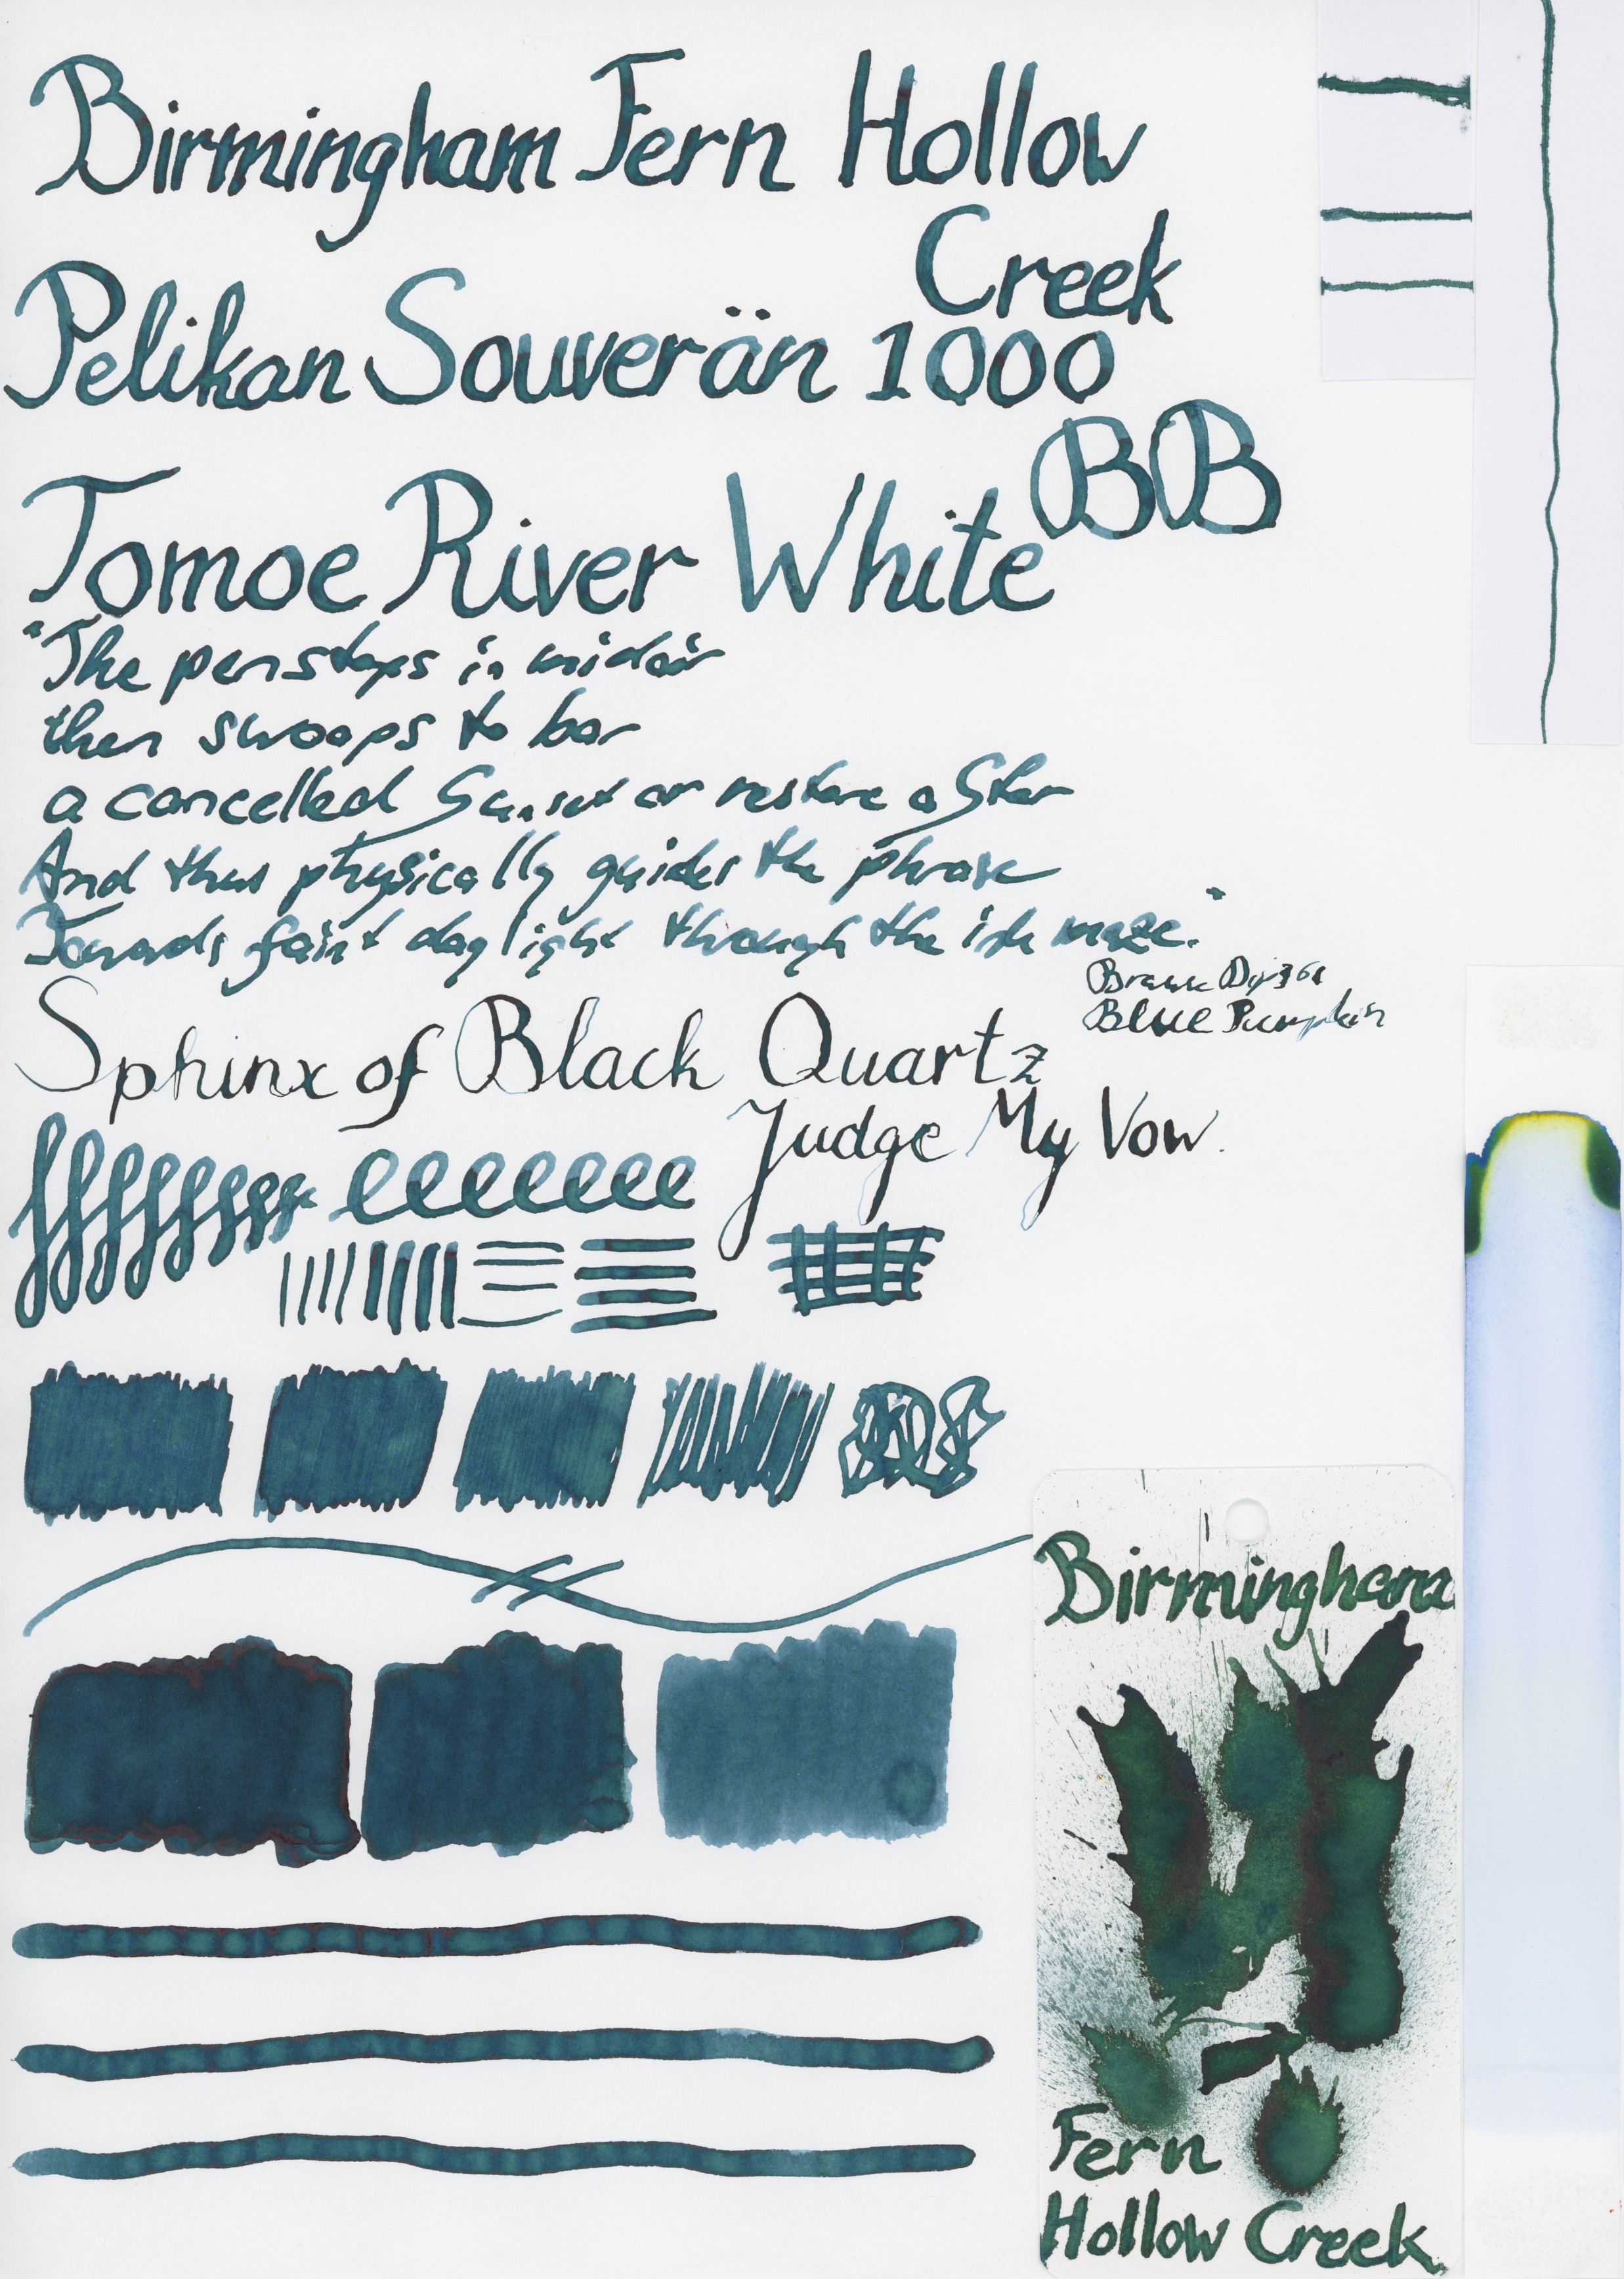 Birmingham Fern Hollow
Creek
Pelikan Souverän 1000
BB
Tomoe River White
"The pen stops in midair
then swoops to bar
a cancelled Sunset or restore a Star
And thus physically guides the phrase
Towards faint daylight through the ink maze."
Brause
Blue Pumpkin
Sphinx of Black Quartz
Judge My Vow.
Birmingham
Fern
Hollow Creek